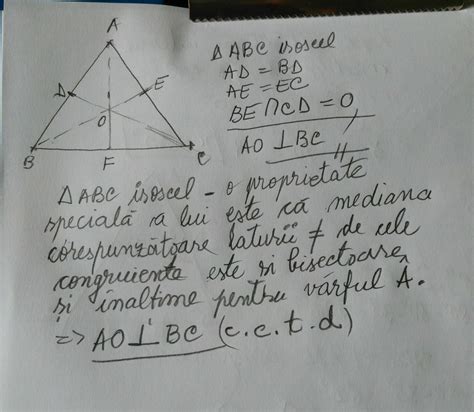 A
D
E
O
B
F
C
△ABC isoscel
AD = BD
AE = EC
BE ∩ CD = O,
AO ⊥ BC
△ABC isoscel - o proprietate
specială a lui este că mediana
corespunzătoare laturii ≠ de cele
congruiente este si bisectoare
și inaltime pentru vârful A.
=> AO ⊥ BC (c.c.t.d)